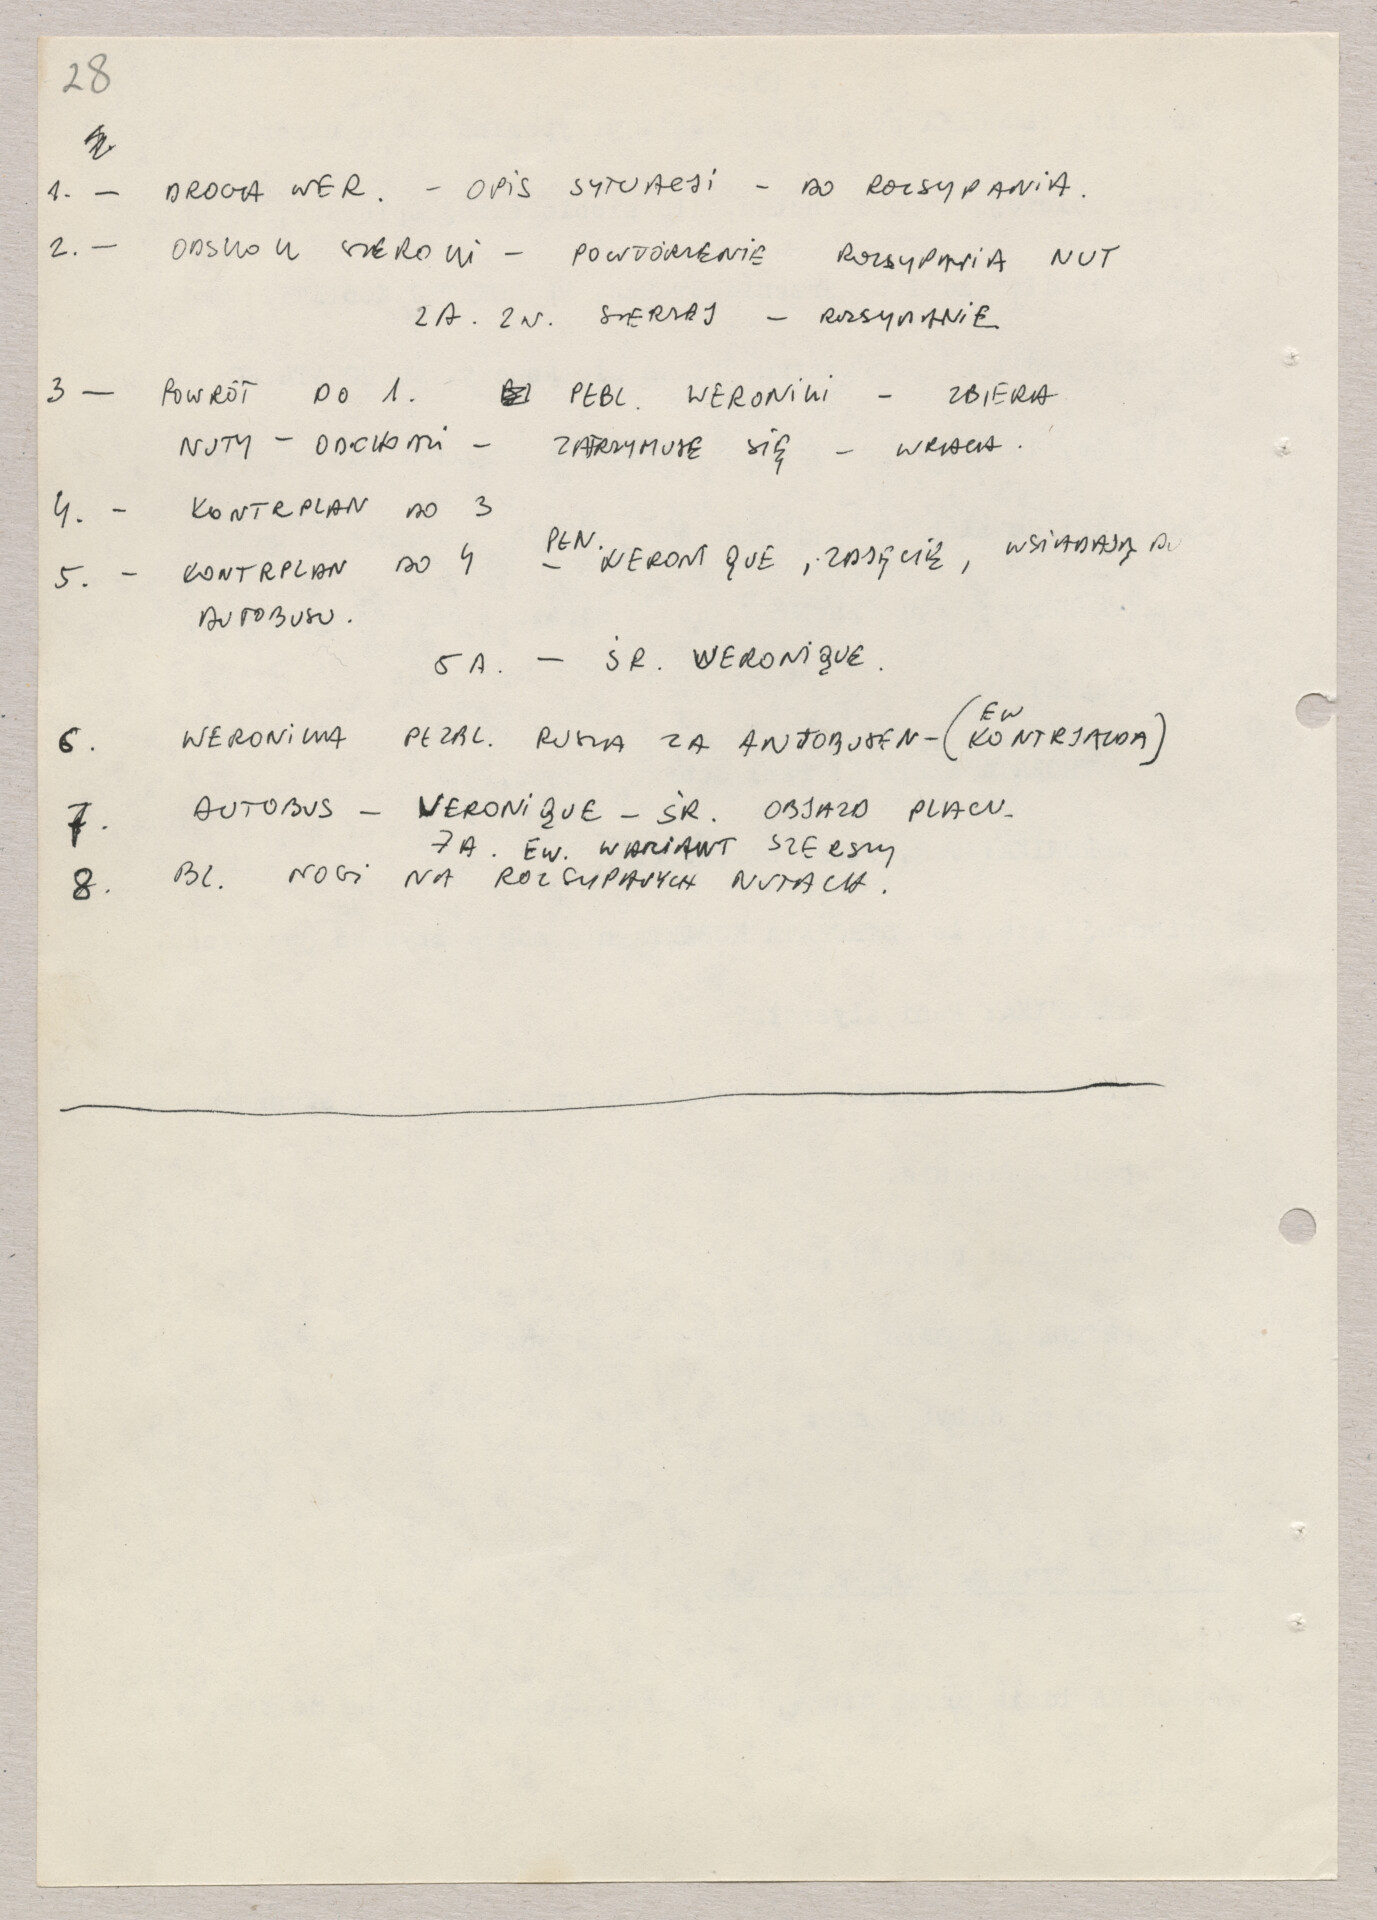 28
1. — DROGA WER. – OPIS SYTUACJI – DO ROZSYPANIA.
2. — ODSKOK SZEROKI – POWTÓRZENIE ROZSYPANIA NUT
2A. ZN. SZERZEJ – ROZSYPANIE
3 — POWRÓT DO 1. PEŁBL. WERONIKI – ZBIERA
NUTY – ODCHODZI – ZATRZYMUJE SIĘ – WRACA.
4. – KONTRPLAN DO 3
5. – KONTRPLAN DO 4 – PEŁN. WERONIQUE, ZDJĘCIE, WSIADAJĄ DO
AUTOBUSU.
5A. – ŚR. WERONIQUE.
6. WERONIKA PEŁBL. RUSZA ZA AUTOBUSEM – (EW KONTRJAZDA)
7. AUTOBUS – VERONIQUE – ŚR. OBJAZD PLACU –
7A. EW. WARIANT SZERSZY
8. BL. NOGI NA ROZSYPANYCH NUTACH.